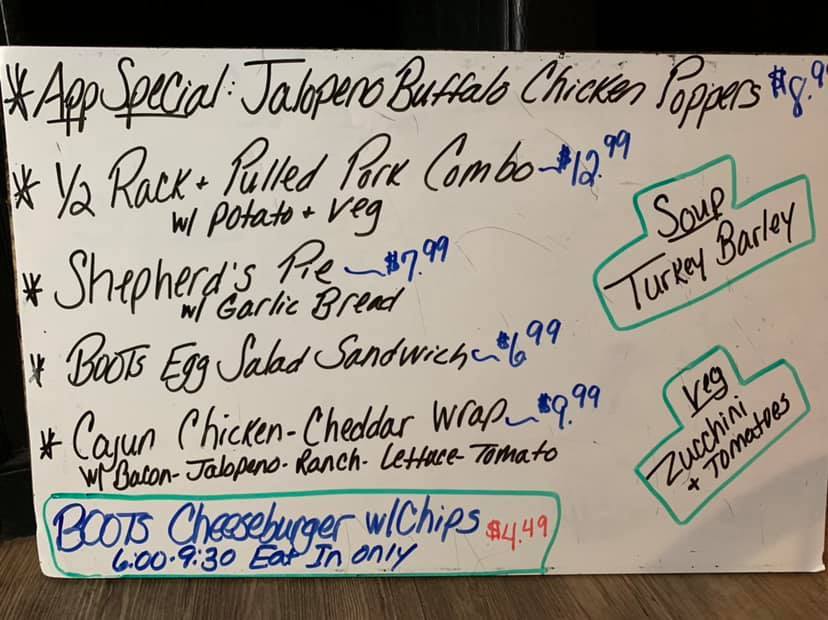 * App Special: Jalopeno Buffalo Chicken Poppers $8.9
* 1/2 Rack + Pulled Pork Combo - $12.99
w/ Potato + Veg
* Shepherd's Pie - $7.99
w/ Garlic Bread
* Boots Egg Salad Sandwich - $6.99
* Cajun Chicken - Cheddar Wrap - $9.99
w/ Bacon - Jalopeno - Ranch - Lettuce - Tomato
BOOTS Cheeseburger w/Chips $4.49
6:00-9:30 Eat In only
Soup
Turkey Barley
Veg
Zucchini
+ Tomatoes